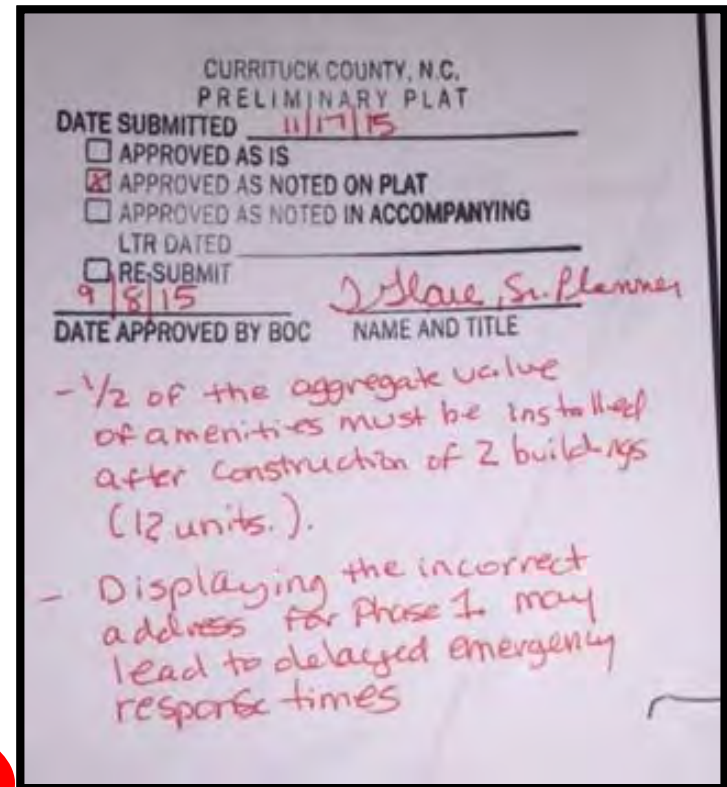 CURRITUCK COUNTY, N.C.
PRELIMINARY PLAT
DATE SUBMITTED 11/17/15
APPROVED AS IS
APPROVED AS NOTED ON PLAT
APPROVED AS NOTED IN ACCOMPANYING
LTR DATED
RE-SUBMIT
9/8/15 Sr. Planner
DATE APPROVED BY BOC NAME AND TITLE
- 1/2 of the aggregate value
of amenities must be installed
after construction of 2 buildings
(12 units.).
- Displaying the incorrect
address for Phase 1 may
lead to delayed emergency
response times